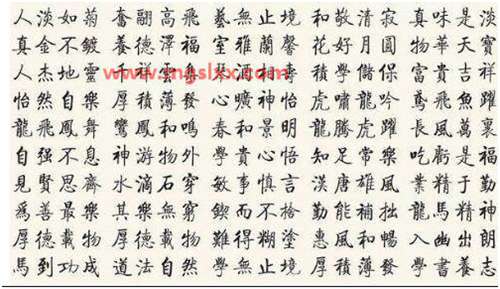 人淡如菊 奮翮高飛 藝無止境 和敬清寂 真味是淡
真金不鍍 養德澤福 室雅蘭馨 花好月圓 物華天寶
人杰地靈 積學儲保 富貴吉祥
www.mgslxx.com
怡然自樂 厚積薄發 心曠神怡 虎嘯龍吟 鳶飛魚躍
龍飛鳳舞 鸞鳳和鳴 春和景明 龍騰虎躍 長風萬裏
自强不息 神游物外 學貴心悟 知足常樂 吃虧是福
見賢思齊 水滴石穿 敏事慎言 漢唐雄風 業精于勤
爲善最樂 其樂無窮 鍥而不捨 勤能補拙 龍馬精神
厚德載物 厚德載物 難得糊塗 惠風和暢 入幽出朗
馬到功成 道法自然 學無止境 厚積薄發 學書養志